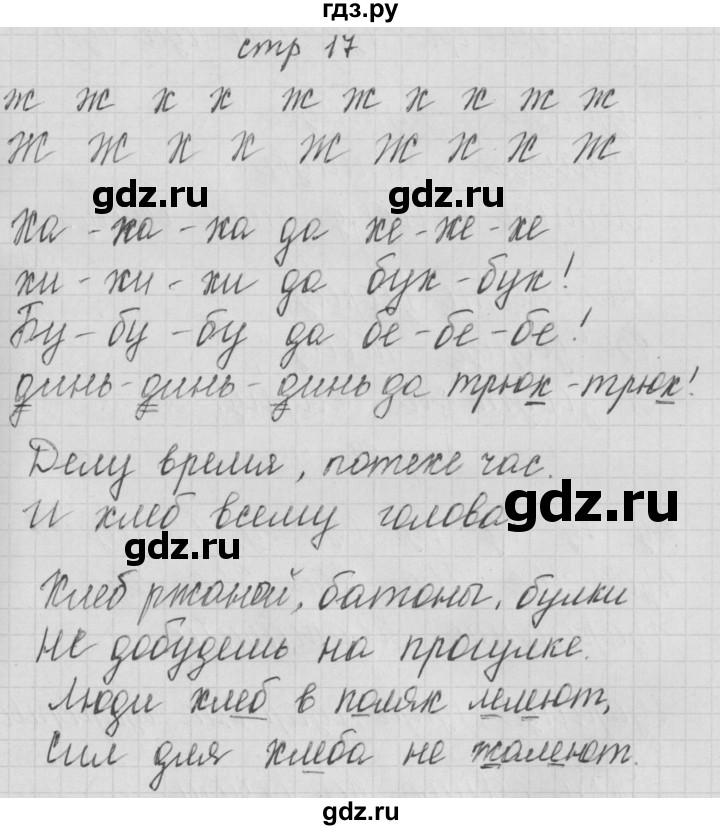 гдз.ру
стр 17
ж ж х х ж ж х х ж ж
Ж Ж Х Х Ж Ж Х Х Ж
gdz.ru gdz.ru
Ха-ха-ха да хе-хе-хе
хи-хи-хи да бух-бух!
Бу-бу-бу да бе-бе-бе!
динь-динь-динь да трюк-трюк!
Делу время, потехе час.
И хлеб всему голова
gdz.ru
gdz.ru
Хлеб ржаной, батоны, булки
Не добудешь на прогулке.
Люди хлеб в полях лелеют,
Сил для хлеба не жалеют.
gdz.ru